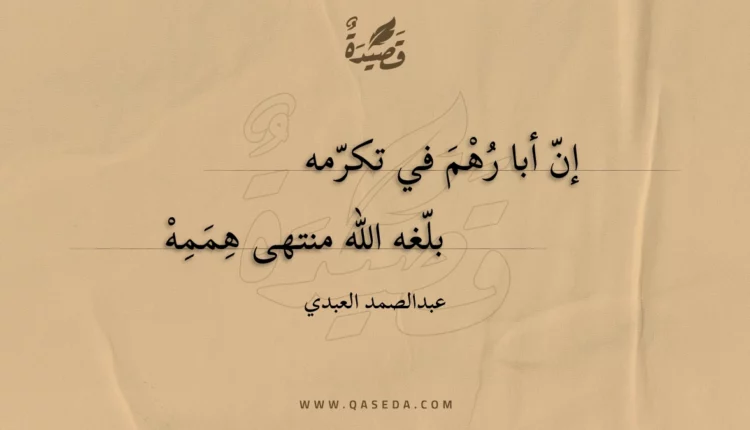 قَصِيْدَةٌ
إنّ أبا رُهْمَ في تكرّمه
بلّغه الله منتهى هِمَمِهْ
عبدالصمد العبدي
WWW.QASEDA.COM